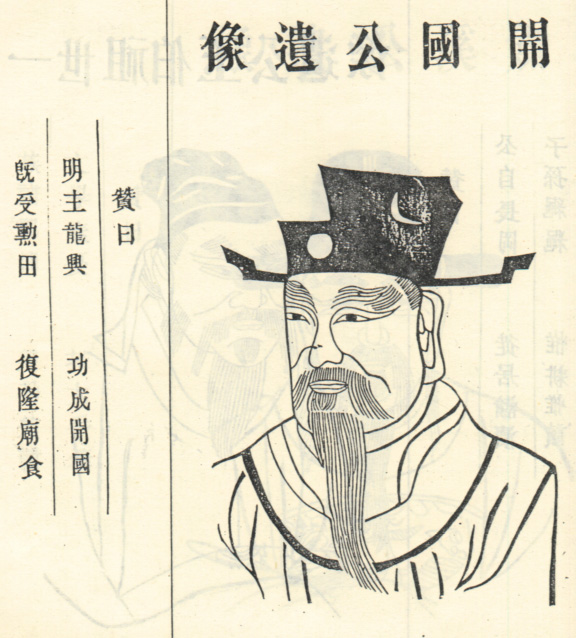 開國公遺像
贊曰
明主龍興 功成開國
旣受勲田 復隆廟食